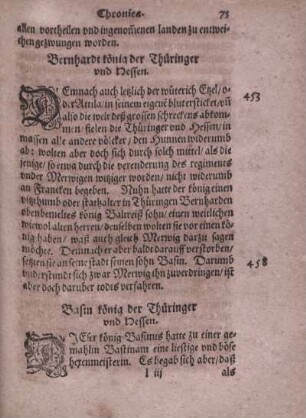 Chronica. 73
allen vortheilen vnd ingenom̃enen landen zu entwei-
chen gezwungen worden.
Bernhardt könig der Thüringer
vnd Hessen.
DEmnach auch letzlich der wüterich Etzel/ o-
der Attila/ in seinem eigenẽ blut ersticket/ vñ
also die welt deß grossen schreckens abkom-
men: fielen die Thüringer vnd Hessen/ in
massen alle andere völcker/ den Hunnen widerumb
ab: wolten aber doch sich durch solch mittel/ als die
jenige/ so ewig durch die verenderung des regiments
vnder Merwigen witziger worden/ nicht widerumb
an Francken begeben. Nuhn hatte der könig einen
vitzthumb oder stathalter in Thüringen Bernharden
obenbemeltes könig Balreiß sohn/ einen weitlichen
wiewol alten herren/ denselben wolten sie vor einen kö-
nig haben/ waß auch gleich Merwig darzu sagen
möchte. Demnach er aber baldt darauff verstorben/
setzten sie an seine stadt seinen sohn Basin. Darumb
vnderstundt sich zwar Merwig ihn zuverdringen/ ist
aber doch darüber todts verfahren.
453
458
Basin könig der Thüringer
vnd Hessen.
DIeser könig Basinus hatte zu einer ge-
mahlin Bastinam eine liestige vnd böse
hexenmeisterin. Es begab sich aber/ daß
I iij als